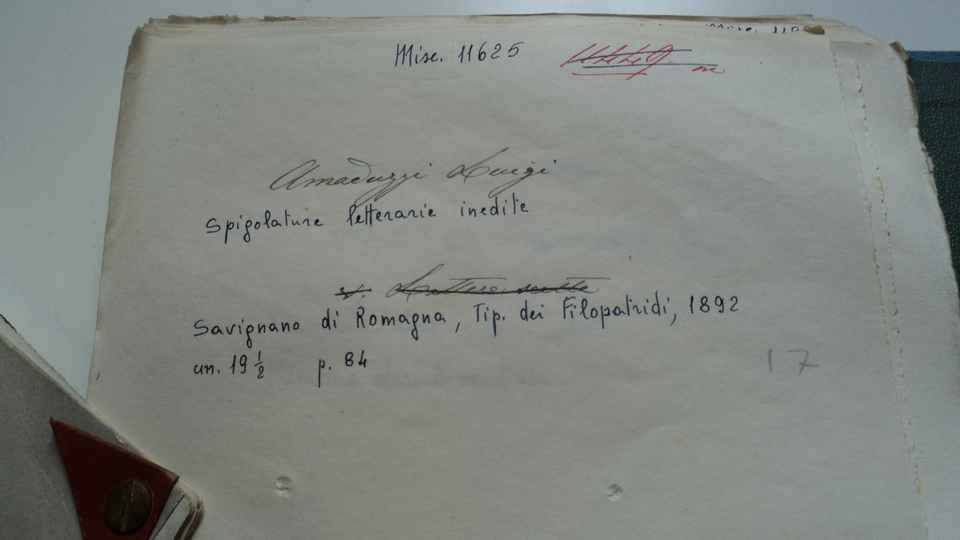 Misc. 11625
Amaduzzi Luigi
Spigolature letterarie inedite
Savignano di Romagna, Tip. dei Filopatridi, 1892
cm. 19 ½ p. 84
17